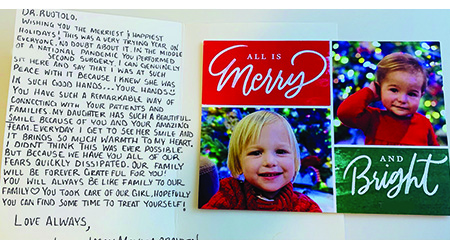 DR. RUOTOLO.
WISHING YOU THE MERRIEST & HAPPIEST
HOLIDAYS! THIS WAS A VERY TRYING YEAR ON
EVERYONE, NO DOUBT ABOUT IT. IN THE MIDDLE
OF A NATIONAL PANDEMIC YOU PERFORMED
SECOND SURGERY. I CAN GENUINELY
SIT HERE AND SAY THAT I WAS AT SUCH
PEACE WITH IT BECAUSE I KNEW SHE WAS
IN SUCH GOOD HANDS... YOUR HANDS!!
YOU HAVE SUCH A REMARKABLE WAY OF
CONNECTING WITH YOUR PATIENTS AND
FAMILIES. MY DAUGHTER HAS SUCH A BEAUTIFUL
SMILE BECAUSE OF YOU AND YOUR AMAZING
TEAM. EVERYDAY I GET TO SEE HER SMILE AND
IT BRINGS SO MUCH WARMTH TO MY HEART.
I DIDN'T THINK THIS WAS EVER POSSIBLE
BUT BECAUSE WE HAVE YOU ALL OF OUR
FEARS QUICKLY DISSIPATED. OUR FAMILY
WILL BE FOREVER GRATEFUL FOR YOU!
YOU WILL ALWAYS BE LIKE FAMILY TO OUR
FAMILY ♡ YOU TOOK CARE OF OUR GIRL, HOPEFULLY
YOU CAN FIND SOME TIME TO TREAT YOURSELF!
LOVE ALWAYS,
ALL IS
Merry
AND
Bright